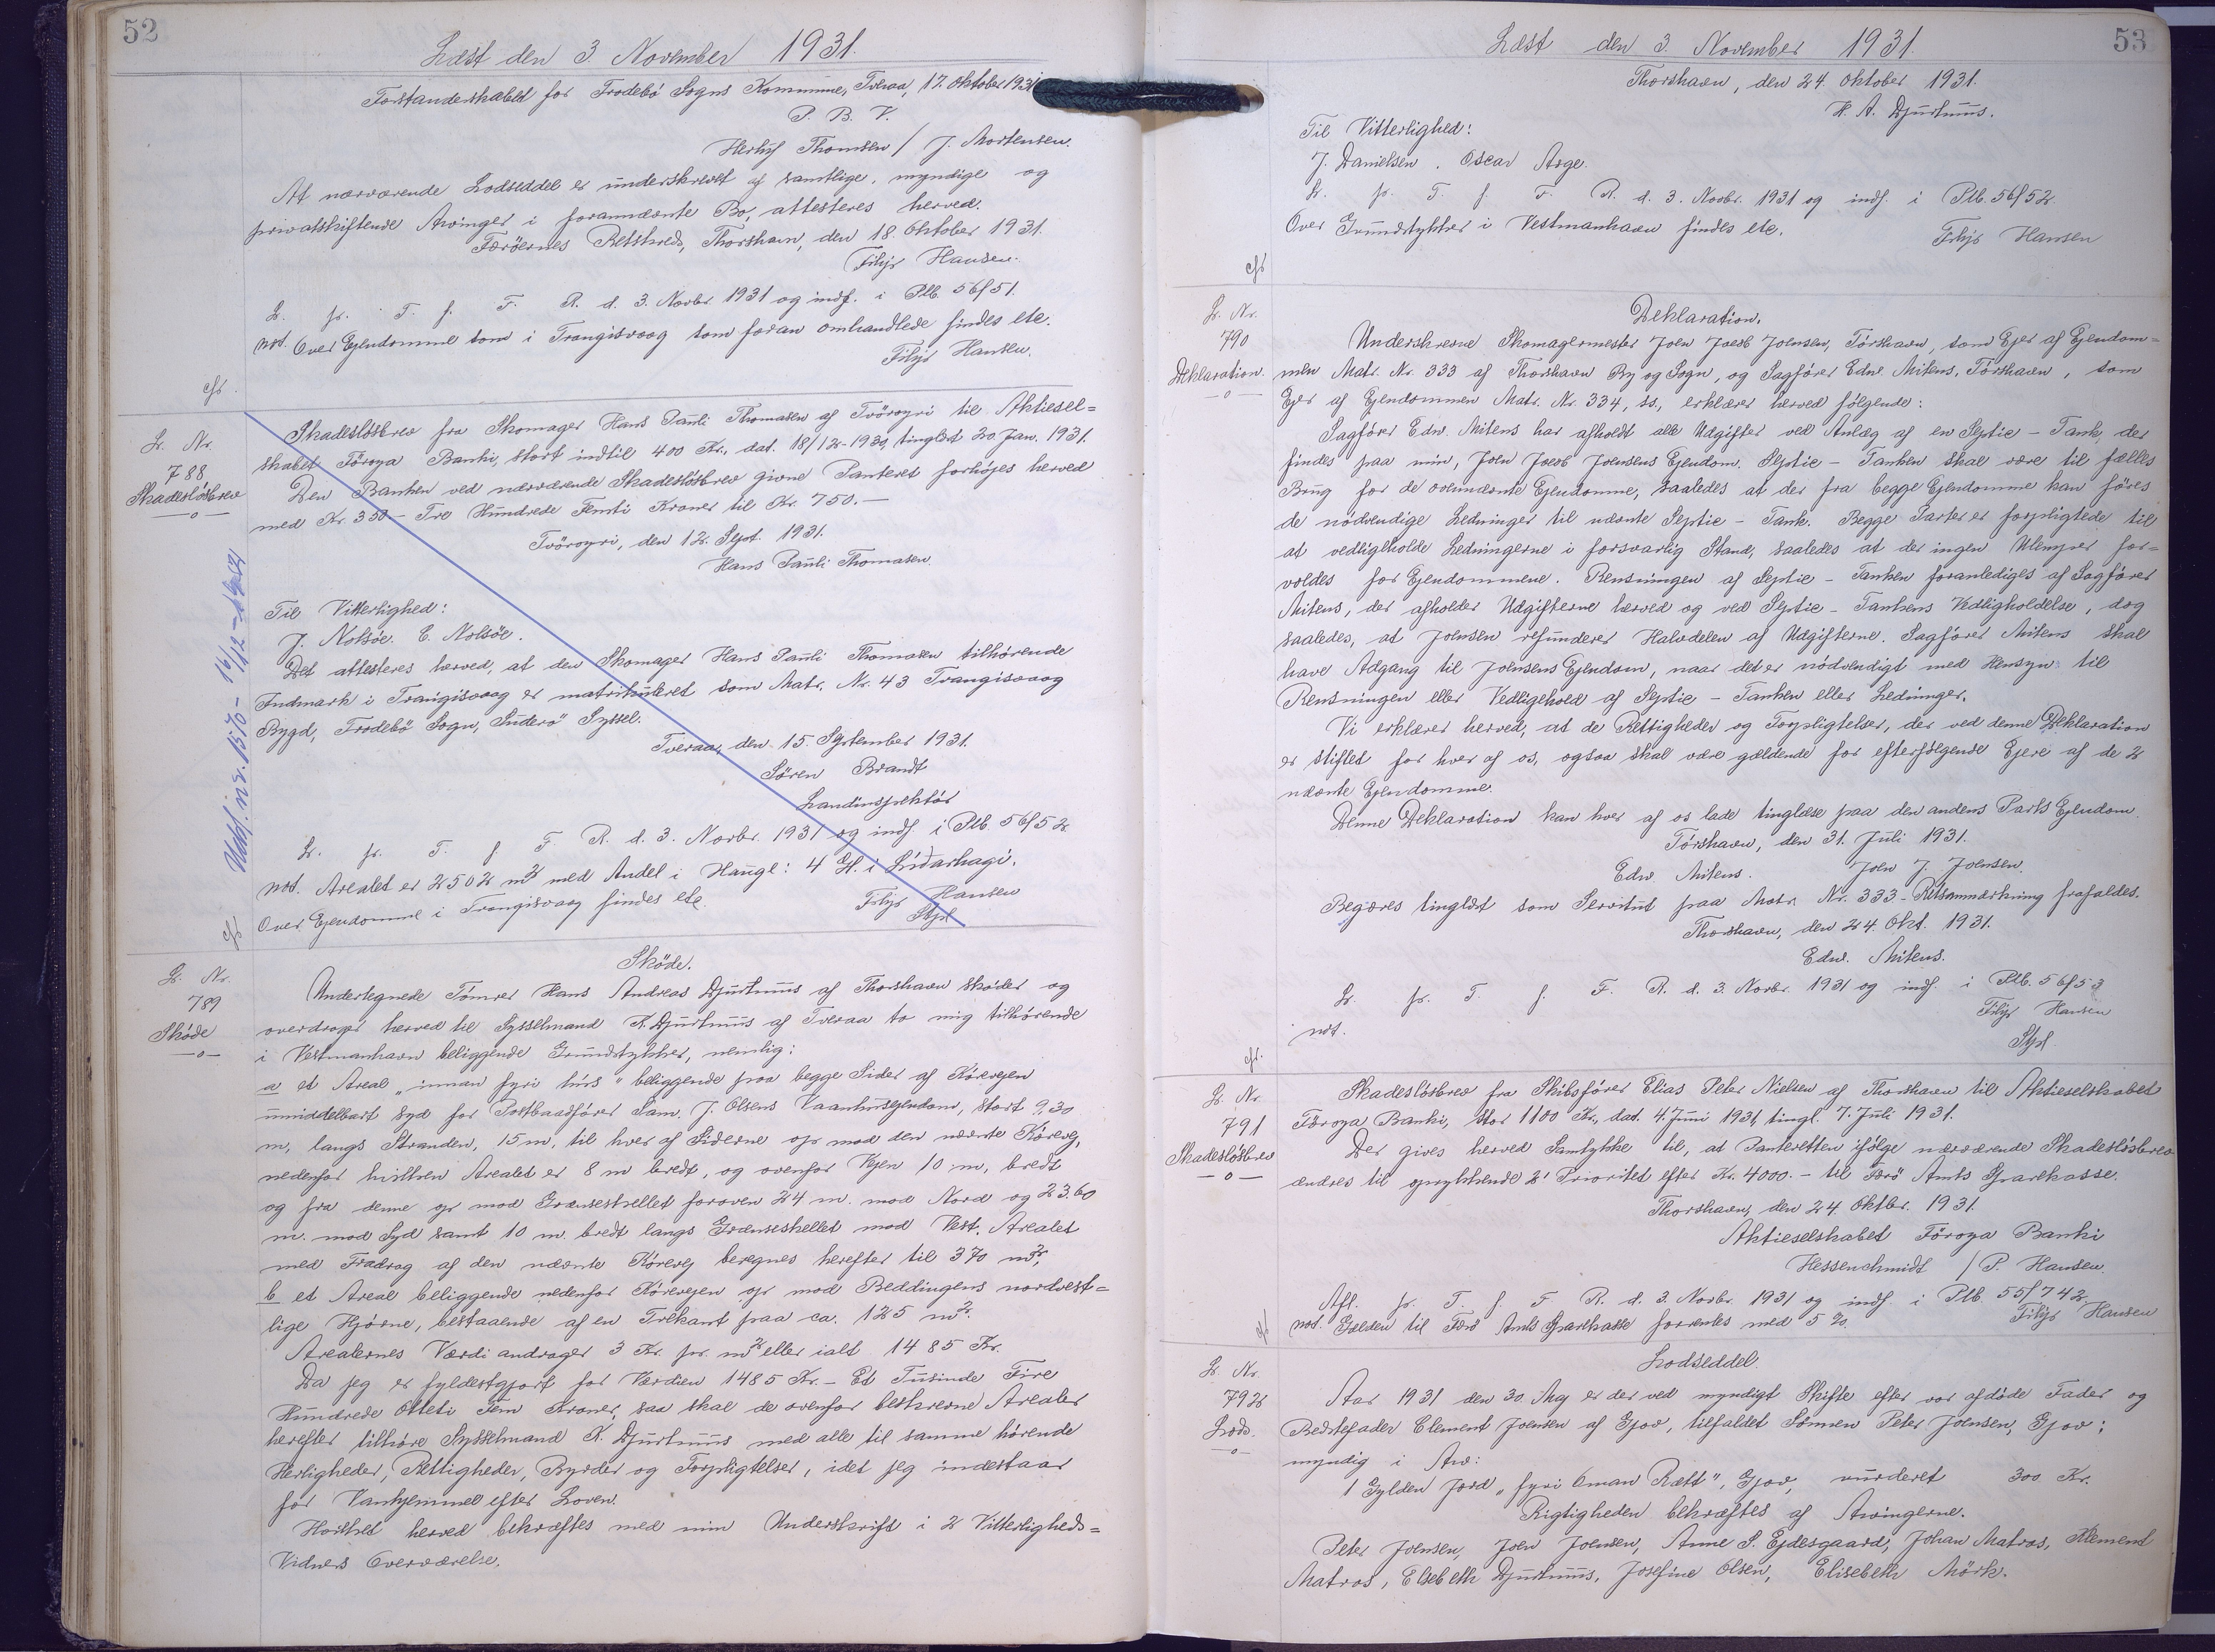 52
Læst den 3. November 1931.
Forstanderskabet for Frodebø Sogns Kommune, Tveraa, 17. Oktober 1931
P. B. V.
Herluf Thomsen / J. Mortensen.
At nærværende Lodseddel er underskrevet af samtlige, myndige og
privatskiftende Arvinger i forannævnte Bo, attesteres herved.
Færøernes Retskreds, Thorshavn, den 18. Oktober 1931.
Filip Hansen.
L. pr. T. f. F. R. d. 3. Novbr. 1931 og indf. i Plb. 56/51.
not. Over Ejendomme som i Trangisvaag som foran omhandlede findes etc.
Filip Hansen.
cfr.
L. Nr.
788
Skadesløsbrev
—o—
Skadesløsbrev fra Skomager Hans Pauli Thomasen af Tvöroyri til Aktiesel=
skabet Föroya Banki, stort indtil 400 Kr., dat. 18/12-1930, tinglæst 20. Jan. 1931.
Den Banken ved nærværende Skadesløsbrev givne Panteret forhøjes herved
med Kr. 350 – Tre Hundrede Femti Kroner til Kr. 750.—
Tvöroyri, den 12. Sept. 1931.
Hans Pauli Thomasen.
Til Vitterlighed:
J. Nolsøe. E. Nolsøe.
Det attesteres herved, at den Skomager Hans Pauli Thomasen tilhørende
Indmark i Trangisvaag er matrikuleret som Matr. Nr. 43 Trangisvaag
Bygd, Frodebø Sogn, Suderø Syssel.
Tveraa, den 15. September 1931.
Søren Brandt
Landinspektør
L. pr. T. f. F. R. d. 3. Novbr. 1931 og indf. i Plb. 56/52
not. Arealet er 2502 m2 med Andel i Haugl: 4 Gl. i Lidarhagi.
Over Ejendomme i Trangisvaag findes etc.
Filip Hansen
Stpl
cfr
L. Nr.
789
Skøde
—o—
Skøde.
Undertegnede Tømrer Hans Andreas Djurhuus af Thorshavn skøder og
overdrager herved til Sysselmand K. Djurhuus af Tveraa to mig tilhørende
i Vestmanhavn beliggende Grundstykker, nemlig:
a et Areal „innan fyri hus“ beliggende paa begge Sider af Kørevejen
umiddelbart syd for Postbaadfører Sam. J. Olsens Vaanhusejendom, stort 9,30
m, langs Stranden, 15 m, til hver af Siderne op mod den nævnte Kørevej,
nedenfor hvilken Arealet er 8 m bredt, og ovenfor Vejen 10 m, bredt
og fra denne op mod Grænseskellet foroven 24 m. mod Nord og 23.60
m. mod Syd samt 10 m. bredt langs Grænseskellet mod Vest. Arealet
med Fradrag af den nævnte Kørevej beregnes herefter til 370 m2,
b et Areal beliggende nedenfor Kørevejen op mod Beddingens nordvest=
lige Hjørne, bestaaende af en Trekant paa ca. 125 m2.
Arealernes Værdi andrager 3 Kr. pr. m2 eller ialt 1485 Kr.
Da jeg er fyldestgjort for Værdien 1485 Kr. – Et Tusinde Fire
Hundrede Otteti Fem Kroner, saa skal de ovenfor beskrevne Arealer
herefter tilhøre Sysselmand K. Djurhuus med alle til samme hørende
Herligheder, Rettigheder, Byrder og Forpligtelser, idet jeg indestaar
for Vanhjemmel efter Loven.
Hvilket herved bekræftes med min Underskrift i 2 Vitterligheds=
Vidners Overværelse.
53
Læst den 3. November 1931.
Thorshavn, den 24. Oktober 1931.
H. A. Djurhuus.
Til Vitterlighed:
J. Danielsen. Oscar Arge.
L. pr. T. f. F. R. d. 3. Novbr. 1931 og indf. i Plb. 56/52.
Over Grundstykker i Vestmanhavn findes etc.
Filip Hansen
cfr
L. Nr.
790
Deklaration.
—o—
Deklaration.
Underskrevne Skomagermester Joen Jacob Joensen, Tórshavn, som Ejer af Ejendom=
men Matr. Nr. 333 af Thorshavn By og Sogn, og Sagfører Edw. Mitens, Tórshavn, som
Ejer af Ejendommen Matr. Nr. 334, ss., erklærer herved følgende:
Sagfører Edw. Mitens har afholdt alle Udgifter ved Anlæg af en Septic – Tank, der
findes paa min, Joen Jacob Joensens Ejendom. Septic – Tanken skal være til fælles
Brug for de ovennævnte Ejendomme, saaledes at der fra begge Ejendomme kan føres
de nødvendige Ledninger til nævnte Septic – Tank. Begge Parter er forpligtede til
at vedligeholde Ledningerne i forsvarlig Stand, saaledes at der ingen Ulemper for=
voldes for Ejendommene. Rensningen af Septic – Tanken foranlediges af Sagfører
Mitens, der afholder Udgifterne herved og ved Septic – Tankens Vedligholdelse, dog
saaledes, at Joensen refunderer Halvdelen af Udgifterne. Sagfører Mitens skal
have Adgang til Joensens Ejendom, naar det er nødvendigt med Hensyn til
Rensningen eller Vedligehold af Septic – Tanken eller Ledninger.
Vi erklærer herved, at de Rettigheder og Forpligtelser, der ved denne Deklaration
er stiftet for hver af os, ogsaa skal være gældende for efterfølgende Ejere af de 2
nævnte Ejendomme.
Denne Deklaration kan hver af os lade tinglæse paa den andens Parts Ejendom.
Tórshavn, den 31. Juli 1931.
Edw Mitens. Joen J. Joensen.
Begæres tinglæst som Servitut paa Matr. Nr. 333 – Retsanmærkning frafaldes.
Thorshavn, den 24. Okt. 1931.
Edw. Mitens.
L. pr. T. f. F. R. d. 3. Novbr. 1931 og indf. i Plb. 56/53
not.
Filip Hansen
Stpl
cfr.
L. Nr.
791
Skadesløsbrev
—o—
Skadesløsbrev fra Skibsfører Elias Peter Nielsen af Thorshavn til Aktieselskabet
Føroya Banki, stor 1100 Kr., dat. 4. Juni 1931, tingl. 7. Juli 1931.
Der gives herved Samtykke til, at Panteretten ifølge nærværende Skadesløsbrev
ændres til oprykkende 2' Prioritet efter Kr. 4000.– til Færø Amts Sparekasse.
Thorshavn, den 24. Oktbr. 1931.
Aktieselskabet Föroya Banki
Hessenschmidt / P. Hansen.
Afl. pr. T. f. F. R. d. 3. Novbr. 1931 og indf. i Plb. 55/742
not. Gælden til Færø Amts Sparekasse forrentes med 5 %.
Filip Hansen
cfr
L. Nr.
792
Lods.
—o—
Lodseddel.
Aar 1931 den 30. Maj er der ved myndigt Skifte efter vor afdøde Fader og
Bedstefader Clement Joensen af Gjov, tilfaldet Sønnen Peter Joensen, Gjov;
myndig i Arv:
1 Gylden Jord „fyri Oman Rætt“, Gjov, vurderet 300 Kr.
Rigtigheden bekræftes af Arvingerne.
Peter Joensen, Joen Joensen, Anne S. Ejdesgaard, Johan Matras, Klement
Matras, Elsebeth Djurhuus, Josefine Olsen, Elisebeth Mørk.